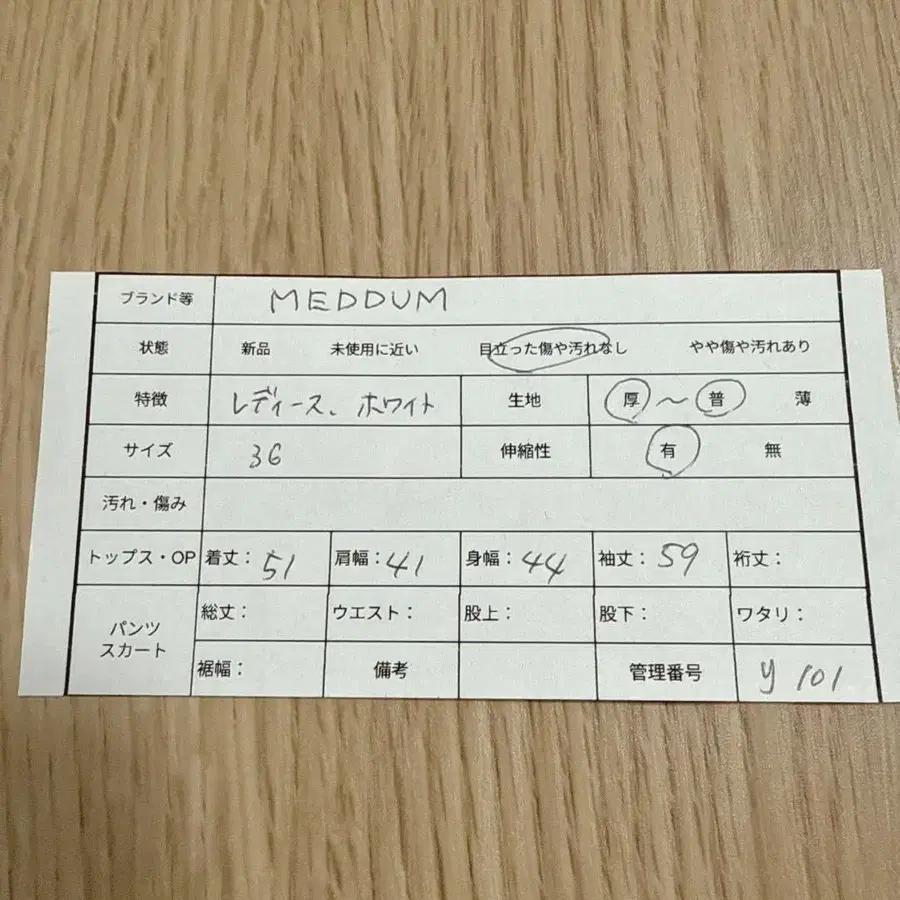 ブランド等 MEDDUM
状態 新品 未使用に近い 目立った傷や汚れなし やや傷や汚れあり
特徴 レディース、ホワイト 生地 厚 〜 普 薄
サイズ 36 伸縮性 有 無
汚れ・傷み
トップス・OP 着丈：51 肩幅：41 身幅：44 袖丈：59 裄丈：
パンツ
スカート
総丈： ウエスト： 股上： 股下： ワタリ：
裾幅： 備考 管理番号 y 101